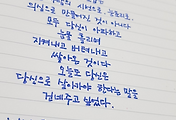 의식으로 만들어진 것이 아니다
모두 당신이 아파하고
눈물 흘리며
지켜내고 버텨내고
쌓아온 것이다
오늘도 당신은
당신으로 살아가야 한다는 말을
건네주고 싶었다.